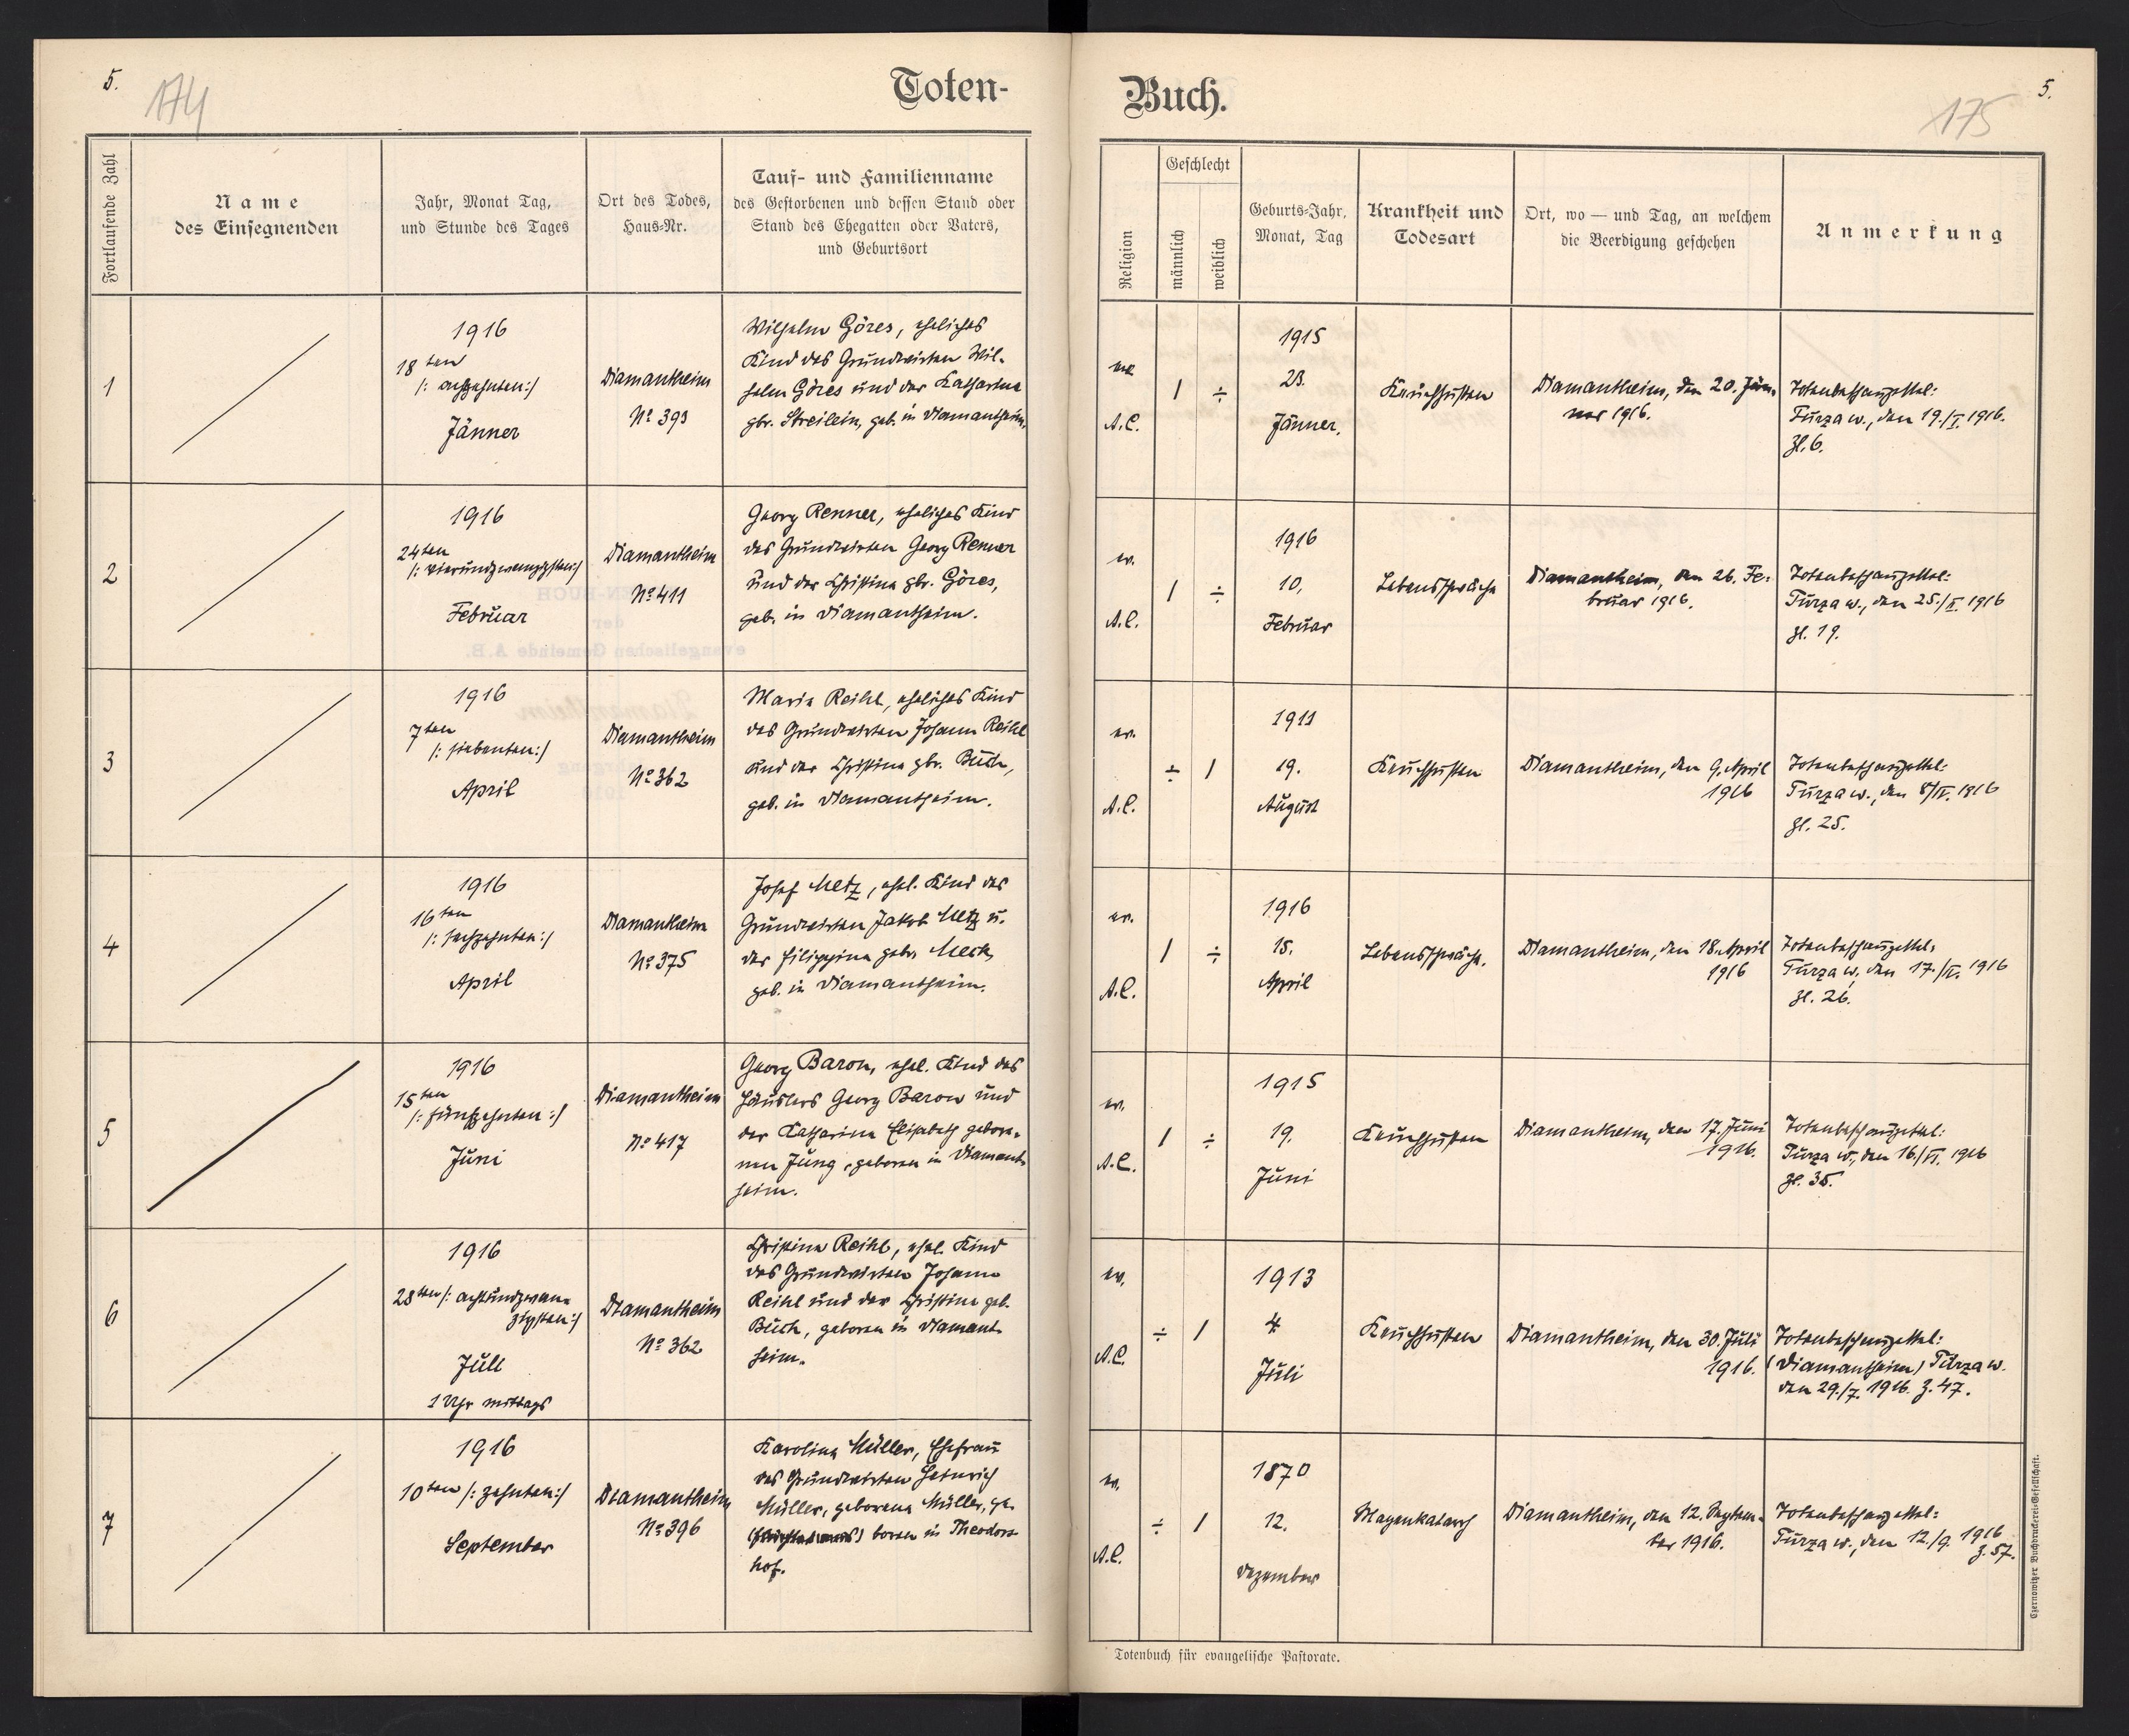 5.
174
Toten-
Fortlaufende Zahl
Name
des Einsegnenden
Jahr, Monat Tag,
und Stunde des Tages
Ort des Todes,
Haus-Nr.
Tauf- und Familienname
des Gestorbenen und dessen Stand oder
Stand des Ehegatten oder Vaters,
und Geburtsort
1
1916
18ten
/: achzehnten:/
Jänner
Diamantheim
No 393
Wilhelm Göres, eheliches
Kind des Grundwirten Wil-
helm Göres und der Katharina
gbr. Streilein, geb. in Diamantheim.
2
1916
24ten
/: vierundzwanzigsten:/
Februar
Diamantheim
No 411
Georg Renner, eheliches Kind
des Grundwirten Georg Renner
und der Christina gbr. Göres,
geb. in Diamantheim.
3
1916
7ten
/: siebenten:/
April
Diamantheim
No 362
Maria Reihl, eheliches Kind
des Grundwirten Johann Reihl
und der Christina gbr. Buch,
geb. in Diamantheim.
4
1916
16ten
/: sechzehnten:/
April
Diamantheim
No 375
Josef Metz, ehel. Kind des
Grundwirten Jakob Metz u.
der Filippina gebr. Meck,
geb. in Diamantheim.
5
1916
15ten
/: fünfzehnten :/
Juni
Diamantheim
No 417
Georg Baron, ehel. Kind des
Häuslers Georg Baron und
der Katharina Elisabeth gebore-
nen Jung, geboren in Diamant-
heim.
6
1916
28ten /: achtundzwan-
zigsten:/
Juli
1 Uhr mittags
Diamantheim
No 362
Christina Reihl, ehel. Kind
des Grundwirten Johann
Reihl und der Christina geb.
Buch, geboren in Diamant-
heim.
7
1916
10ten /: zehnten:/
September
Diamantheim
No 396
Karolina Müller, Ehefrau
des Grundwirten Heinrich
Müller, geborene Müller, ge-
boren in Theodors-
hof.
Buch.
175
5.
Religion
Geschlecht
männlich
weiblich
Geburts-Jahr,
Monat, Tag
Krankheit und
Todesart
Ort, wo — und Tag, an welchem
die Beerdigung geschehen
Anmerkung
ev.
A.C.
1
÷
1915
23.
Jänner.
Keuchhusten
Diamantheim, den 20. Jän-
ner 1916.
Totenbeschauzettel:
Turza w., den 19./I. 1916.
Zl. 6.
ev.
A.C.
1
÷
1916
10.
Februar
Lebensschwäche
Diamantheim, den 26. Fe-
bruar 1916.
Totenbeschauzettel:
Turza w., den 25./II. 1916
Zl. 19.
ev.
A.C.
÷
1
1911
19.
August
Keuchhusten
Diamantheim, den 9. April
1916
Totenbeschauzettel:
Turza w., den 8/IV. 1916
Zl. 25.
ev.
A.C.
1
÷
1916
15.
April
Lebensschwäche.
Diamantheim, den 18. April
1916
Totenbeschauzettel:
Turza w., den 17./IV. 1916
Zl. 26.
ev.
A.C.
1
÷
1915
19.
Juni
Keuchhusten
Diamantheim, den 17. Juni
1916.
Totenbeschauzettel:
Turza w., den 16./VI. 1916
Zl. 35.
ev.
A.C.
÷
1
1913
4.
Juli
Keuchhusten
Diamantheim, den 30. Juli
1916.
Totenbeschauzettel:
(Diamantheim) Turza w.
den 29./7. 1916. Z. 47.
ev.
A.C.
÷
1
1870
12.
Dezember
Magenkatarrh
Diamantheim, den 12. Septem-
ber 1916.
Totenbeschauzettel:
Turza w., den 12./9. 1916
Z. 57.
Totenbuch für evangelische Pastorate.
Czernowitzer Buchdruckerei-Gesellschaft.